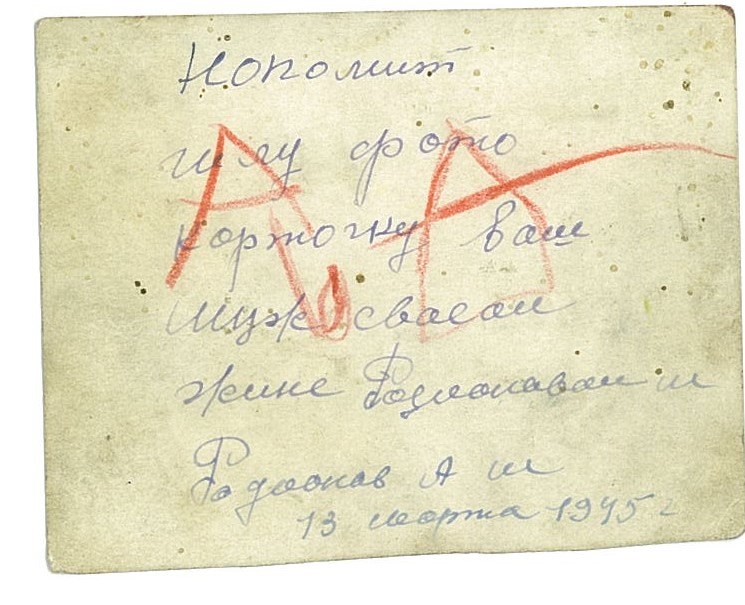 Нопомит
шлу фото
карточку ваш
муж сваеаи
жине Родионаваи м
Родионав А м
13 марта 1945 г